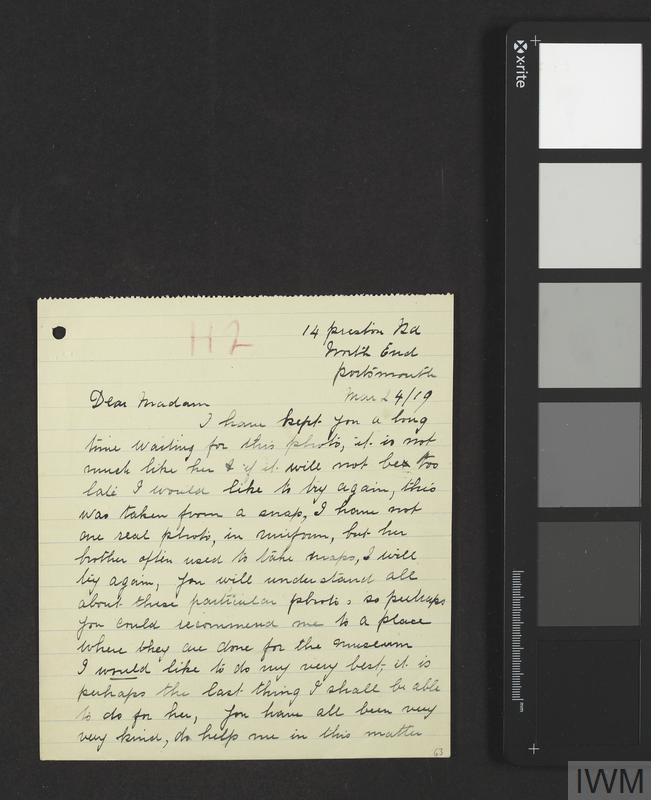 H2
14 Preston Rd
North End
Portsmouth
Mar 24/19
Dear Madam
I have kept you a long
time waiting for this photo, it is not
much like her & if it will not be too
late I would like to try again, this
was taken from a snap, I have not
one real photo, in uniform, but her
brother often used to take snaps, I will
try again, you will understand all
about these particular photos so perhaps
you could recommend me to a place
where they are done for the museum
I would like to do my very best, it is
perhaps the last thing I shall be able
to do for her, you have all been very
very kind, do help me in this matter
63
x-rite
mm
IWM